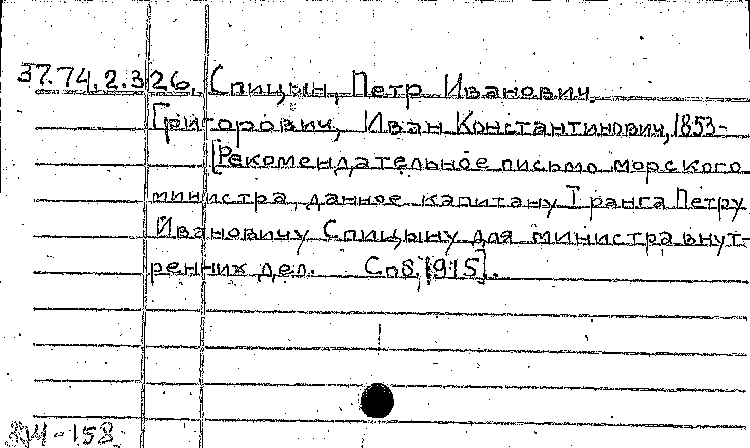 37.74.2.326. Спицын, Петр Иванович.
Григорович, Иван Константинович, 1853-
[Рекомендательное письмо морского
министра, данное капитану I ранга Петру
Ивановичу Спицыну для министра внут-
ренних дел. Спб, 1915].
-158